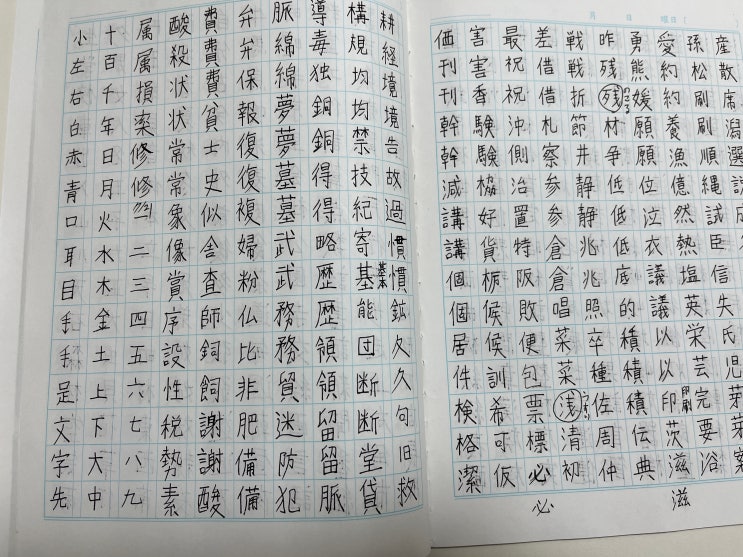 月 日 曜日(
産散席潟選
孫松刷刷順縄誠臣塩英栄芸完要浴
愛約約養漁億然熱議議以以印茨滋
印刷
滋
勇熊媛願願位泣衣
昨残残材争低低低底的積積積伝典
戦戦折節井静静兆兆照卒種佐周仲
差借借札察参参倉倉唱菜菜浅清初
最祝祝沖側治置特阪敗便包票標必
必
害害香験験協好貨栃候候訓希可仮
価刊刊幹幹減講講個個居件検格潔
耕経境境告故過慣慣鉱久久句旧救
構規均均禁技紀寄基能団断断堂貸
墓
導毒独銅銅得得略歴歴領領留留脈
脈綿綿夢夢墓墓武武務務貿迷防犯
弁弁保報復復複婦粉仏比非肥備備
費費費貧士史似舎査師飼飼謝謝酸
酸殺状状常常象像賞序設性税勢素
属属損率修修一二三四五六七八九
十百千年日月火水木金土上下大中
小左右白赤青口耳目手手足文字先